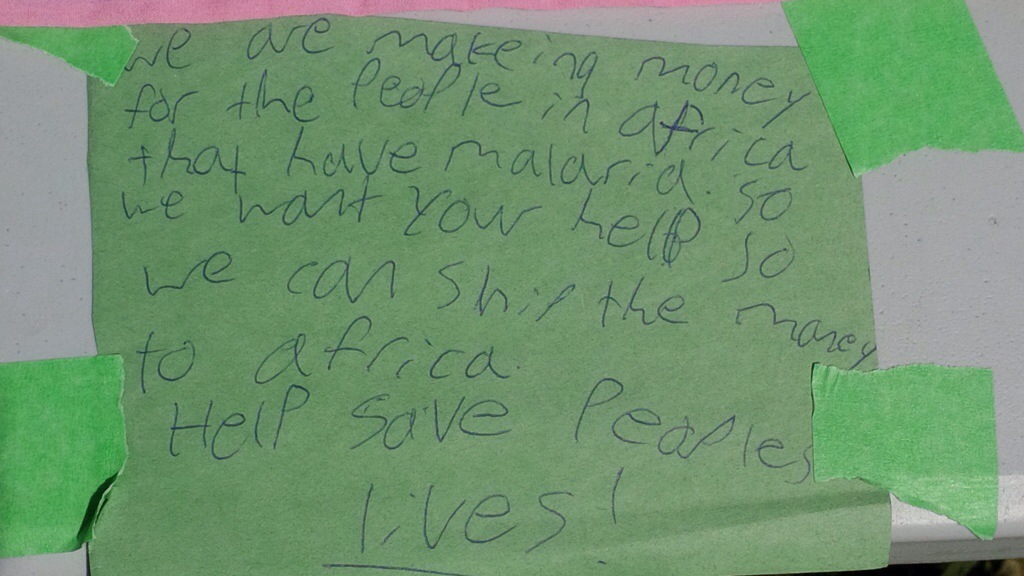 we are makeing money
for the People in africa
that have malaria. so
we want Your help so
we can ship the money
to africa.
Help save Peoples
lives!